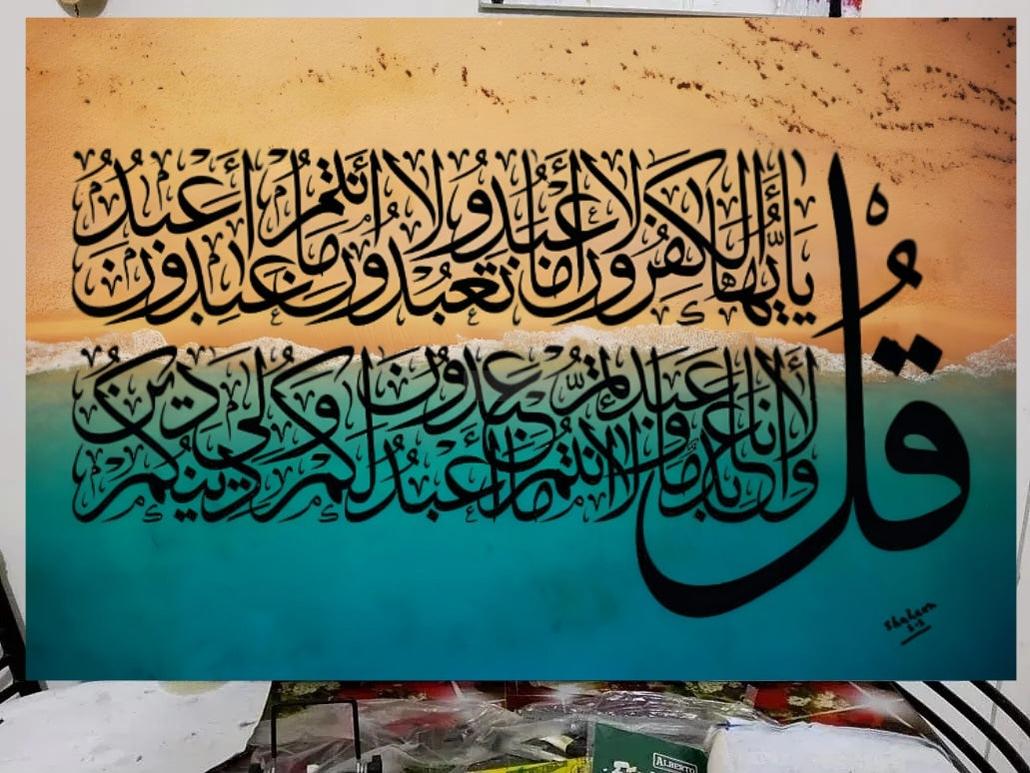 قُلْ يَا أَيُّهَا الْكَفِرُونَ لَا أَعْبُدُ مَا تَعْبُدُونَ وَلَا أَنتُمْ عَبِدُونَ مَا أَعْبُدُ
وَلَا أَنَا عَابِدٌ مَّا عَبَدتُّمْ وَلَا أَنتُمْ عَبِدُونَ مَا أَعْبُدُ لَكُمْ دِينُكُمْ وَلِيَ دِينِ
Shaheen
ALBERTO